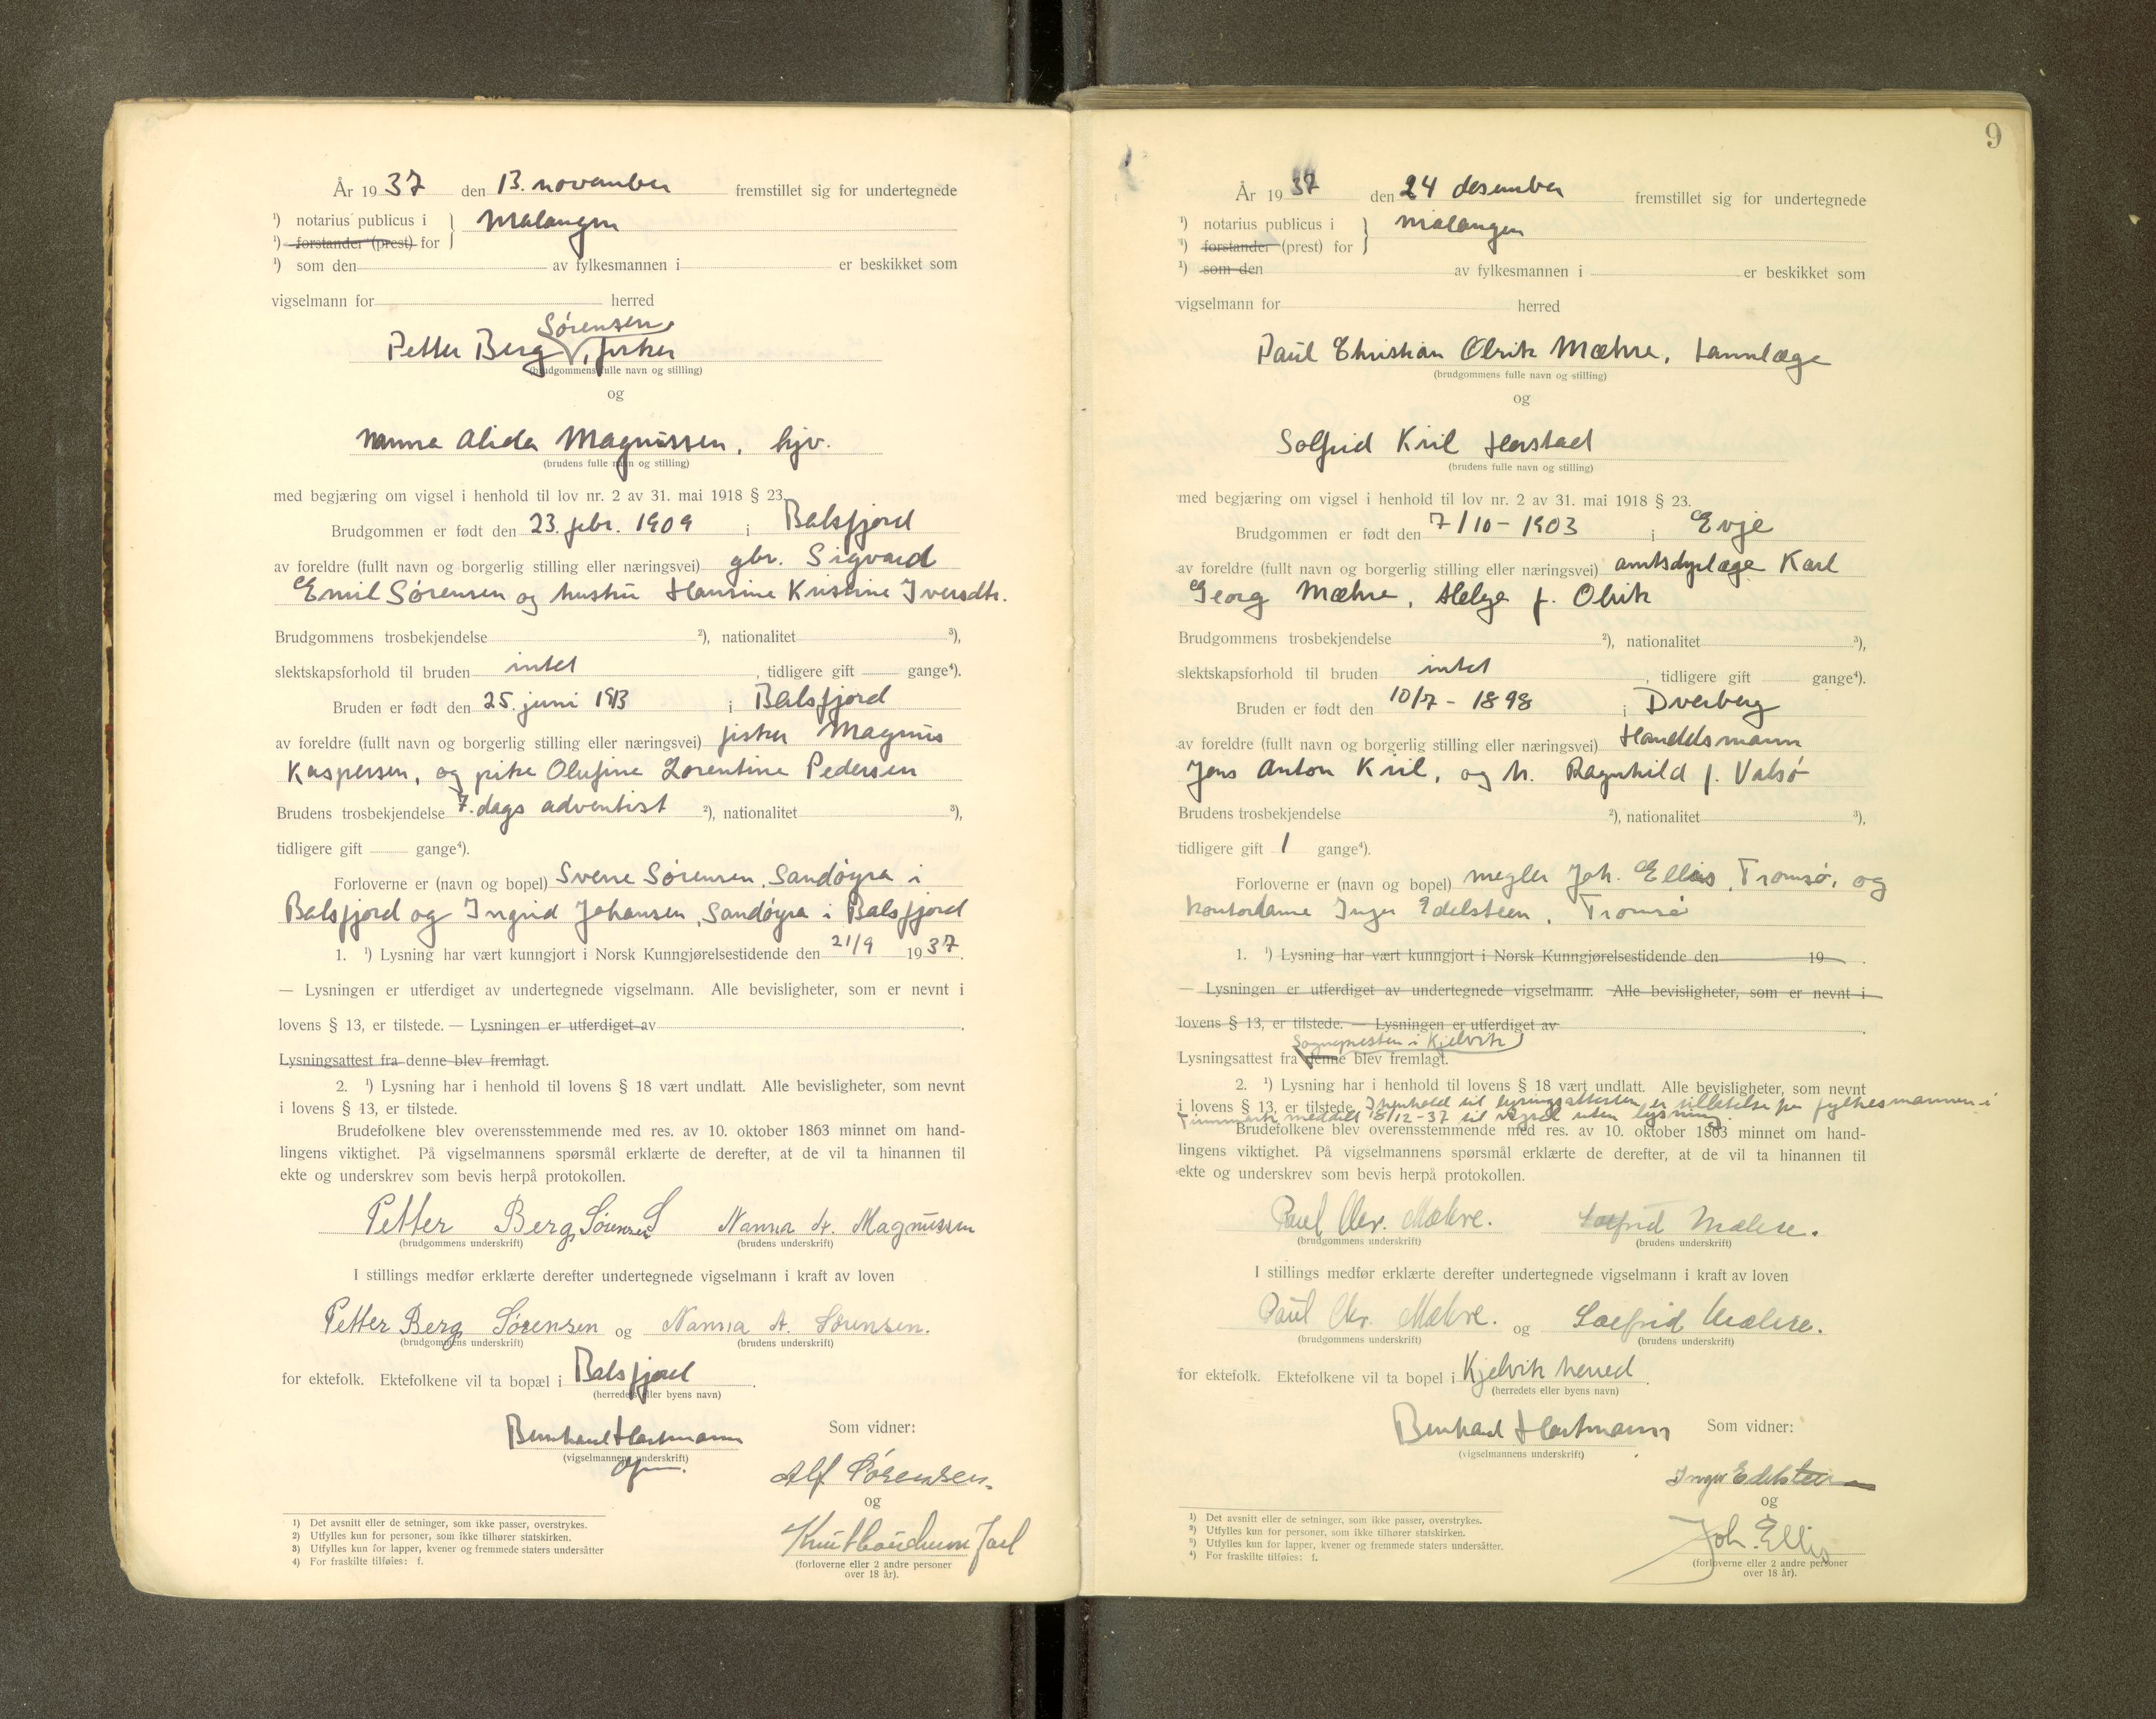 År 1937 den 13. november fremstillet sig for undertegnede
¹) notarius publicus i } Malangen
¹) forstander (prest) for
¹) som den av fylkesmannen i er beskikket som
vigselmann for herred
Sørensen
Petter Berg, fisker
(brudgommens fulle navn og stilling)
og
Nanna Alida Magnussen, hjv.
(brudens fulle navn og stilling)
med begjæring om vigsel i henhold til lov nr. 2 av 31. mai 1918 § 23.
Brudgommen er født den 23. febr. 1909 i Balsfjord
av foreldre (fullt navn og borgerlig stilling eller næringsvei) gbr. Sigvard
Emil Sørensen og hustru Hansine Kristine Iversdtr.
Brudgommens trosbekjendelse ²), nationalitet ³),
slektskapsforhold til bruden intet, tidligere gift gange⁴).
Bruden er født den 25. juni 1913 i Balsfjord
av foreldre (fullt navn og borgerlig stilling eller næringsvei) fisker Magnus
Kaspersen, og pike Olufine Lorentine Pedersen
Brudens trosbekjendelse 7. dags adventist ²), nationalitet ³),
tidligere gift gange⁴).
Forloverne er (navn og bopel) Sverre Sørensen, Sandøyra i
Balsfjord og Ingrid Johansen, Sandøyra i Balsfjord
1. ¹) Lysning har vært kunngjort i Norsk Kunngjørelsestidende den 21/9 1937.
— Lysningen er utferdiget av undertegnede vigselmann. Alle bevisligheter, som er nevnt i
lovens § 13, er tilstede. — Lysningen er utferdiget av
Lysningsattest fra denne blev fremlagt.
2. ¹) Lysning har i henhold til lovens § 18 vært undlatt. Alle bevisligheter, som nevnt
i lovens § 13, er tilstede.
Brudefolkene blev overensstemmende med res. av 10. oktober 1863 minnet om hand-
lingens viktighet. På vigselmannens spørsmål erklærte de derefter, at de vil ta hinannen til
ekte og underskrev som bevis herpå protokollen.
Petter Berg Sørensen Nanna A. Magnussen
(brudgommens underskrift) (brudens underskrift)
I stillings medfør erklærte derefter undertegnede vigselmann i kraft av loven
Petter Berg Sørensen og Nanna A. Sørensen.
(brudgommens underskrift) (brudens underskrift)
for ektefolk. Ektefolkene vil ta bopæl i Balsfjord.
(herredets eller byens navn)
Bernhard Hartmann Som vidner:
(vigselmannens underskrift)
Alf Sørensen.
og
(forloverne eller 2 andre personer
over 18 år).
1) Det avsnitt eller de setninger, som ikke passer, overstrykes.
2) Utfylles kun for personer, som ikke tilhører statskirken.
3) Utfylles kun for lapper, kvener og fremmede staters undersåtter
4) For fraskilte tilføies: f.
9
År 1937 den 24 desember fremstillet sig for undertegnede
¹) notarius publicus i } Malangen
¹) forstander (prest) for
¹) som den av fylkesmannen i er beskikket som
vigselmann for herred
Paul Christian Olrik Mæhre, tannlæge
(brudgommens fulle navn og stilling)
og
Solfrid Kiil Harstad
(brudens fulle navn og stilling)
med begjæring om vigsel i henhold til lov nr. 2 av 31. mai 1918 § 23.
Brudgommen er født den 7/10 - 1903 i Evje
av foreldre (fullt navn og borgerlig stilling eller næringsvei) amtsdyrlæge Karl
Georg Mæhre, Helga f. Olrik
Brudgommens trosbekjendelse ²), nationalitet ³),
slektskapsforhold til bruden intet, tidligere gift gange⁴).
Bruden er født den 10/7 - 1898 i Dverberg
av foreldre (fullt navn og borgerlig stilling eller næringsvei) Handelsmann
Jens Anton Kiil, og h. Ragnhild f. Valsø
Brudens trosbekjendelse ²), nationalitet ³),
tidligere gift 1 gange⁴).
Forloverne er (navn og bopel) megler Joh. Ellis, Tromsø, og
kontordame Inger Edelsteen, Tromsø
1. ¹) Lysning har vært kunngjort i Norsk Kunngjørelsestidende den 19 .
— Lysningen er utferdiget av undertegnede vigselmann. Alle bevisligheter, som er nevnt i
lovens § 13, er tilstede. — Lysningen er utferdiget av
Sognepresten i Kjelvik
Lysningsattest fra denne blev fremlagt.
2. ¹) Lysning har i henhold til lovens § 18 vært undlatt. Alle bevisligheter, som nevnt
i lovens § 13, er tilstede. I henhold til lysningsattesten er tillatelse fra fylkesmannen i
Finnmark meddelt 18/12-37 til vigsel uten lysning
Brudefolkene blev overensstemmende med res. av 10. oktober 1863 minnet om hand-
lingens viktighet. På vigselmannens spørsmål erklærte de derefter, at de vil ta hinannen til
ekte og underskrev som bevis herpå protokollen.
Paul Chr. Mæhre. Solfrid Mæhre.
(brudgommens underskrift) (brudens underskrift)
I stillings medfør erklærte derefter undertegnede vigselmann i kraft av loven
Paul Chr. Mæhre. og Solfrid Mæhre.
(brudgommens underskrift) (brudens underskrift)
for ektefolk. Ektefolkene vil ta bopel i Kjelvik herred
(herredets eller byens navn)
Bernhard Hartmann Som vidner:
(vigselmannens underskrift)
Inger Edelsteen
og
Joh. Ellis
(forloverne eller 2 andre personer
over 18 år).
¹) Det avsnitt eller de setninger, som ikke passer, overstrykes.
²) Utfylles kun for personer, som ikke tilhører statskirken.
³) Utfylles kun for lapper, kvener og fremmede staters undersåtter.
⁴) For fraskilte tilføies: f.